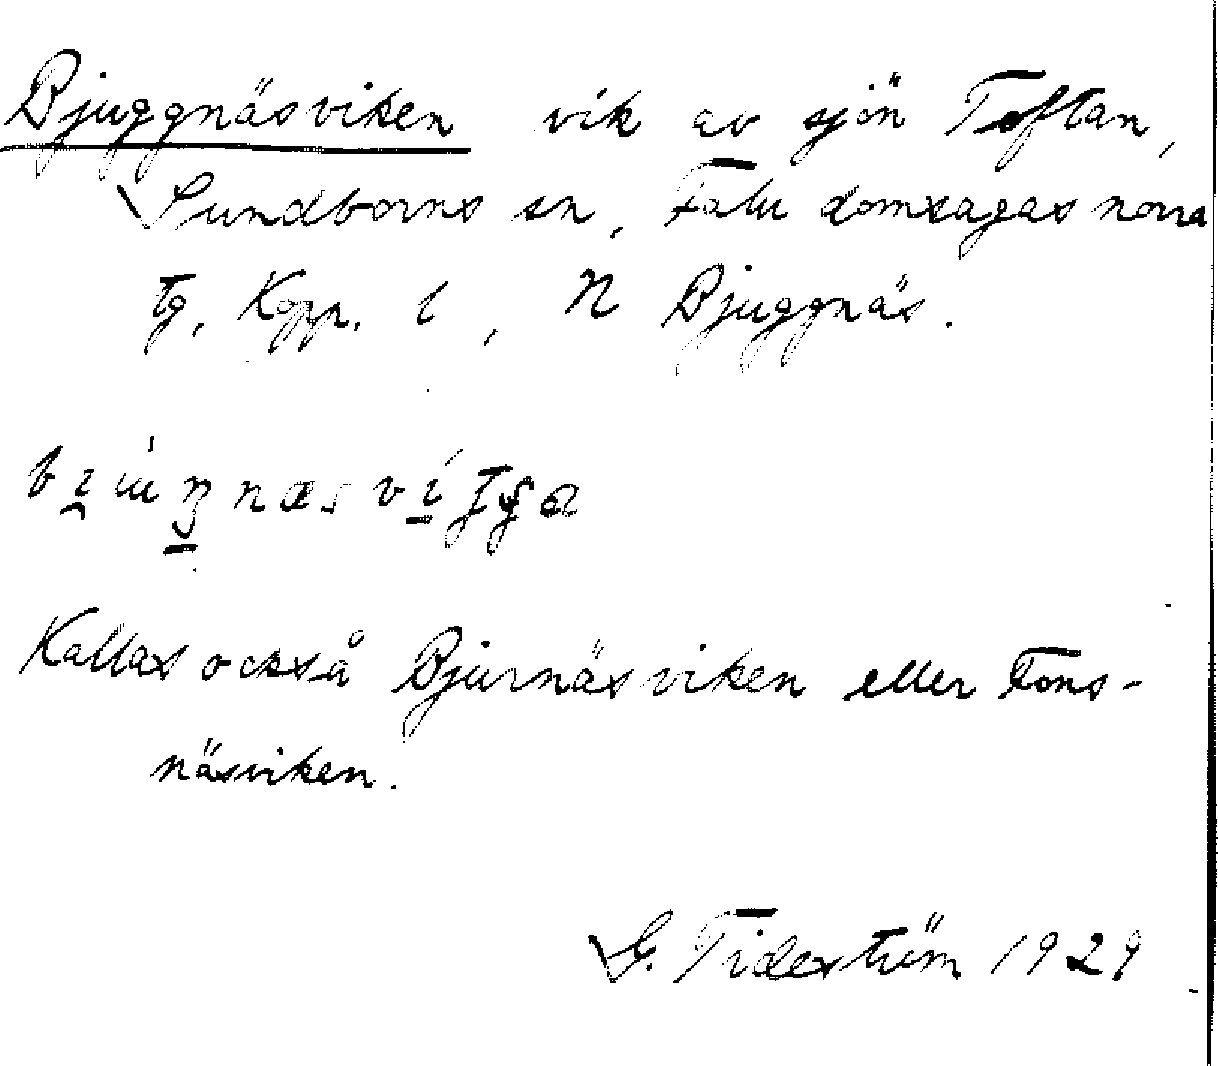 Bjuggnäsviken vik av sjön Toftan,
Sundborns sn, Falu domsagas norra
tg, Kopp. l, N Bjuggnäs.
Kallas också Bjurnäsviken eller Tons-
näsviken.
G. Tideström 1929